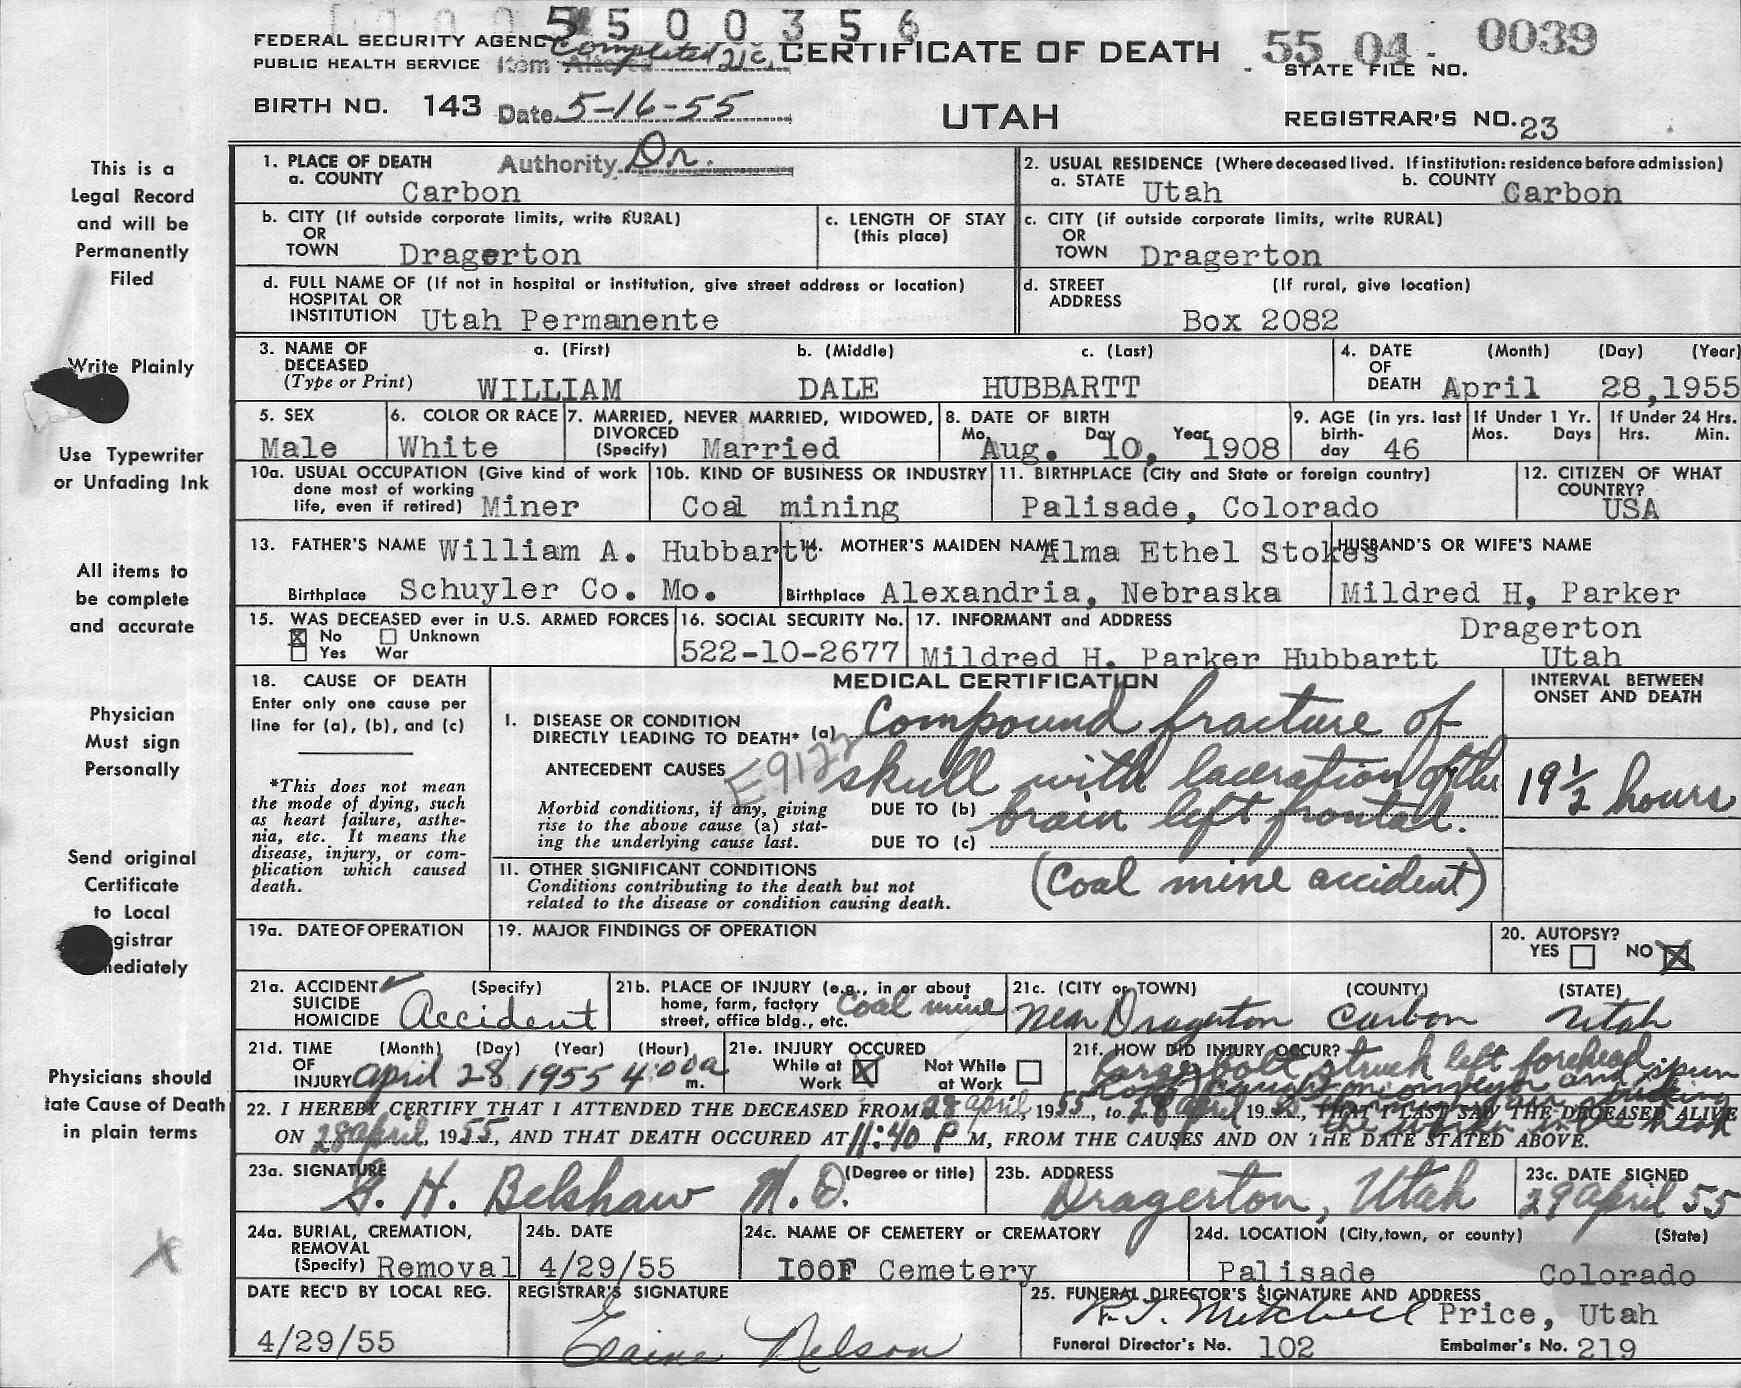 5500356
FEDERAL SECURITY AGENCY
PUBLIC HEALTH SERVICE
Item Completed 21c
CERTIFICATE OF DEATH
55 04 - 0039
STATE FILE NO.
BIRTH NO. 143
Date 5-16-55
UTAH
REGISTRAR'S NO. 23
Authority Dr.
This is a
Legal Record
and will be
Permanently
Filed
1. PLACE OF DEATH
a. COUNTY Carbon
2. USUAL RESIDENCE (Where deceased lived. If institution: residence before admission)
a. STATE Utah b. COUNTY Carbon
b. CITY (If outside corporate limits, write RURAL)
OR
TOWN Dragerton
c. LENGTH OF STAY
(this place)
c. CITY (if outside corporate limits, write RURAL)
OR
TOWN Dragerton
d. FULL NAME OF (If not in hospital or institution, give street address or location)
HOSPITAL OR
INSTITUTION Utah Permanente
d. STREET (If rural, give location)
ADDRESS
Box 2082
Write Plainly
3. NAME OF a. (First) b. (Middle) c. (Last)
DECEASED
(Type or Print) WILLIAM DALE HUBBARTT
4. DATE (Month) (Day) (Year)
OF
DEATH April 28,1955
Use Typewriter
or Unfading Ink
5. SEX
Male
6. COLOR OR RACE
White
7. MARRIED, NEVER MARRIED, WIDOWED,
DIVORCED
(Specify) Married
8. DATE OF BIRTH
Mo. Day Year
Aug. 10, 1908
9. AGE (in yrs. last
birth-
day 46
If Under 1 Yr.
Mos. Days
If Under 24 Hrs.
Hrs. Min.
10a. USUAL OCCUPATION (Give kind of work
done most of working
life, even if retired) Miner
10b. KIND OF BUSINESS OR INDUSTRY
Coal mining
11. BIRTHPLACE (City and State or foreign country)
Palisade, Colorado
12. CITIZEN OF WHAT
COUNTRY?
USA
All items to
be complete
and accurate
13. FATHER'S NAME William A. Hubbartt
Birthplace Schuyler Co. Mo.
14. MOTHER'S MAIDEN NAME Alma Ethel Stokes
Birthplace Alexandria, Nebraska
HUSBAND'S OR WIFE'S NAME
Mildred H. Parker
15. WAS DECEASED ever in U.S. ARMED FORCES
No Unknown
Yes War
16. SOCIAL SECURITY No.
522-10-2677
17. INFORMANT and ADDRESS
Dragerton
Mildred H. Parker Hubbartt Utah
Physician
Must sign
Personally
18. CAUSE OF DEATH
Enter only one cause per
line for (a), (b), and (c)
*This does not mean
the mode of dying, such
as heart failure, asthe-
nia, etc. It means the
disease, injury, or com-
plication which caused
death.
MEDICAL CERTIFICATION
INTERVAL BETWEEN
ONSET AND DEATH
I. DISEASE OR CONDITION
DIRECTLY LEADING TO DEATH* (a) Compound fracture of
ANTECEDENT CAUSES E9122 skull with laceration of the
19 1/2 hours
Morbid conditions, if any, giving
rise to the above cause (a) stat-
ing the underlying cause last.
DUE TO (b) brain left frontal.
DUE TO (c)
11. OTHER SIGNIFICANT CONDITIONS
Conditions contributing to the death but not
related to the disease or condition causing death.
(Coal mine accident)
Send original
Certificate
to Local
gistrar
mediately
19a. DATE OF OPERATION
19. MAJOR FINDINGS OF OPERATION
20. AUTOPSY?
YES NO
21a. ACCIDENT (Specify)
SUICIDE
HOMICIDE Accident
21b. PLACE OF INJURY (e.g., in or about
home, farm, factory
street, office bldg., etc. Coal mine
21c. (CITY or TOWN) (COUNTY) (STATE)
Near Dragerton Carbon Utah
Physicians should
tate Cause of Death
in plain terms
21d. TIME (Month) (Day) (Year) (Hour)
OF
INJURY April 28 1955 4:00 a m.
21e. INJURY OCCURED
While at Work Not While at Work
21f. HOW DID INJURY OCCUR?
Large bolt struck left forehead
caught in conveyor and spun
striking
the worker in the head
22. I HEREBY CERTIFY THAT I ATTENDED THE DECEASED FROM 28 April, 1955, to 28 April 1955, THAT I LAST SAW THE DECEASED ALIVE
ON 28 April, 1955, AND THAT DEATH OCCURED AT 11:40 P M, FROM THE CAUSES AND ON THE DATE STATED ABOVE.
23a. SIGNATURE (Degree or title)
G. H. Belshaw M.D.
23b. ADDRESS
Dragerton, Utah
23c. DATE SIGNED
29 April 55
24a. BURIAL, CREMATION,
REMOVAL
(Specify) Removal
24b. DATE
4/29/55
24c. NAME OF CEMETERY OR CREMATORY
IOOF Cemetery
24d. LOCATION (City, town, or county) (State)
Palisade Colorado
DATE REC'D BY LOCAL REG.
4/29/55
REGISTRAR'S SIGNATURE
Elaine Nelson
25. FUNERAL DIRECTOR'S SIGNATURE AND ADDRESS
R.J. Mitchell Price, Utah
Funeral Director's No. 102 Embalmer's No. 219